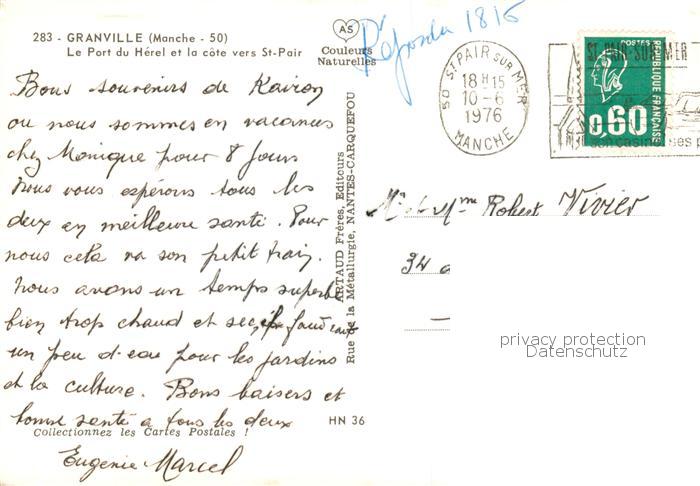 283 - GRANVILLE (Manche - 50)
Le Port du Hérel et la côte vers St-Pair
AS
Couleurs
Naturelles
Répondu 18 15
50 ST PAIR SUR MER
18 H 15
10 - 6
1976
MANCHE
ST-PAIR-SUR-MER
son casino ses p
POSTES
REPUBLIQUE FRANÇAISE
0,60
Bons souvenirs de Kairon
ou nous sommes en vacances
chez Monique pour 8 jours
Nous vous espérons tous les
deux en meilleure santé. Pour
nous cela va son petit train.
Nous avons un temps superbe
bien trop chaud et sec, il faudrait
un peu d'eau pour les jardins
et la culture. Bons baisers et
bonne santé a tous les deux
Eugenie Marcel
Collectionnez les Cartes Postales !
HN 36
ARTAUD Frères, Editeurs
Rue de la Métallurgie, NANTES-CARQUEFOU
Mr et Mme Robert Vivier
34
privacy protection
Datenschutz